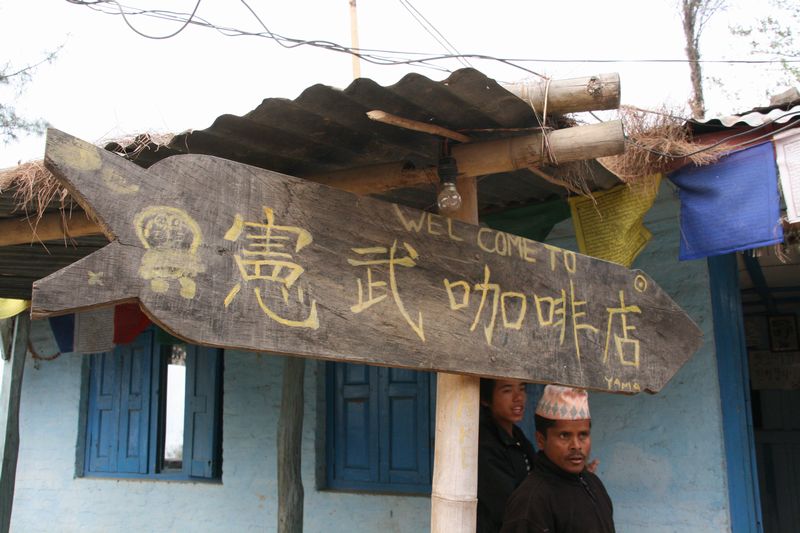 WEL COME TO
憲武咖啡店
YAMA